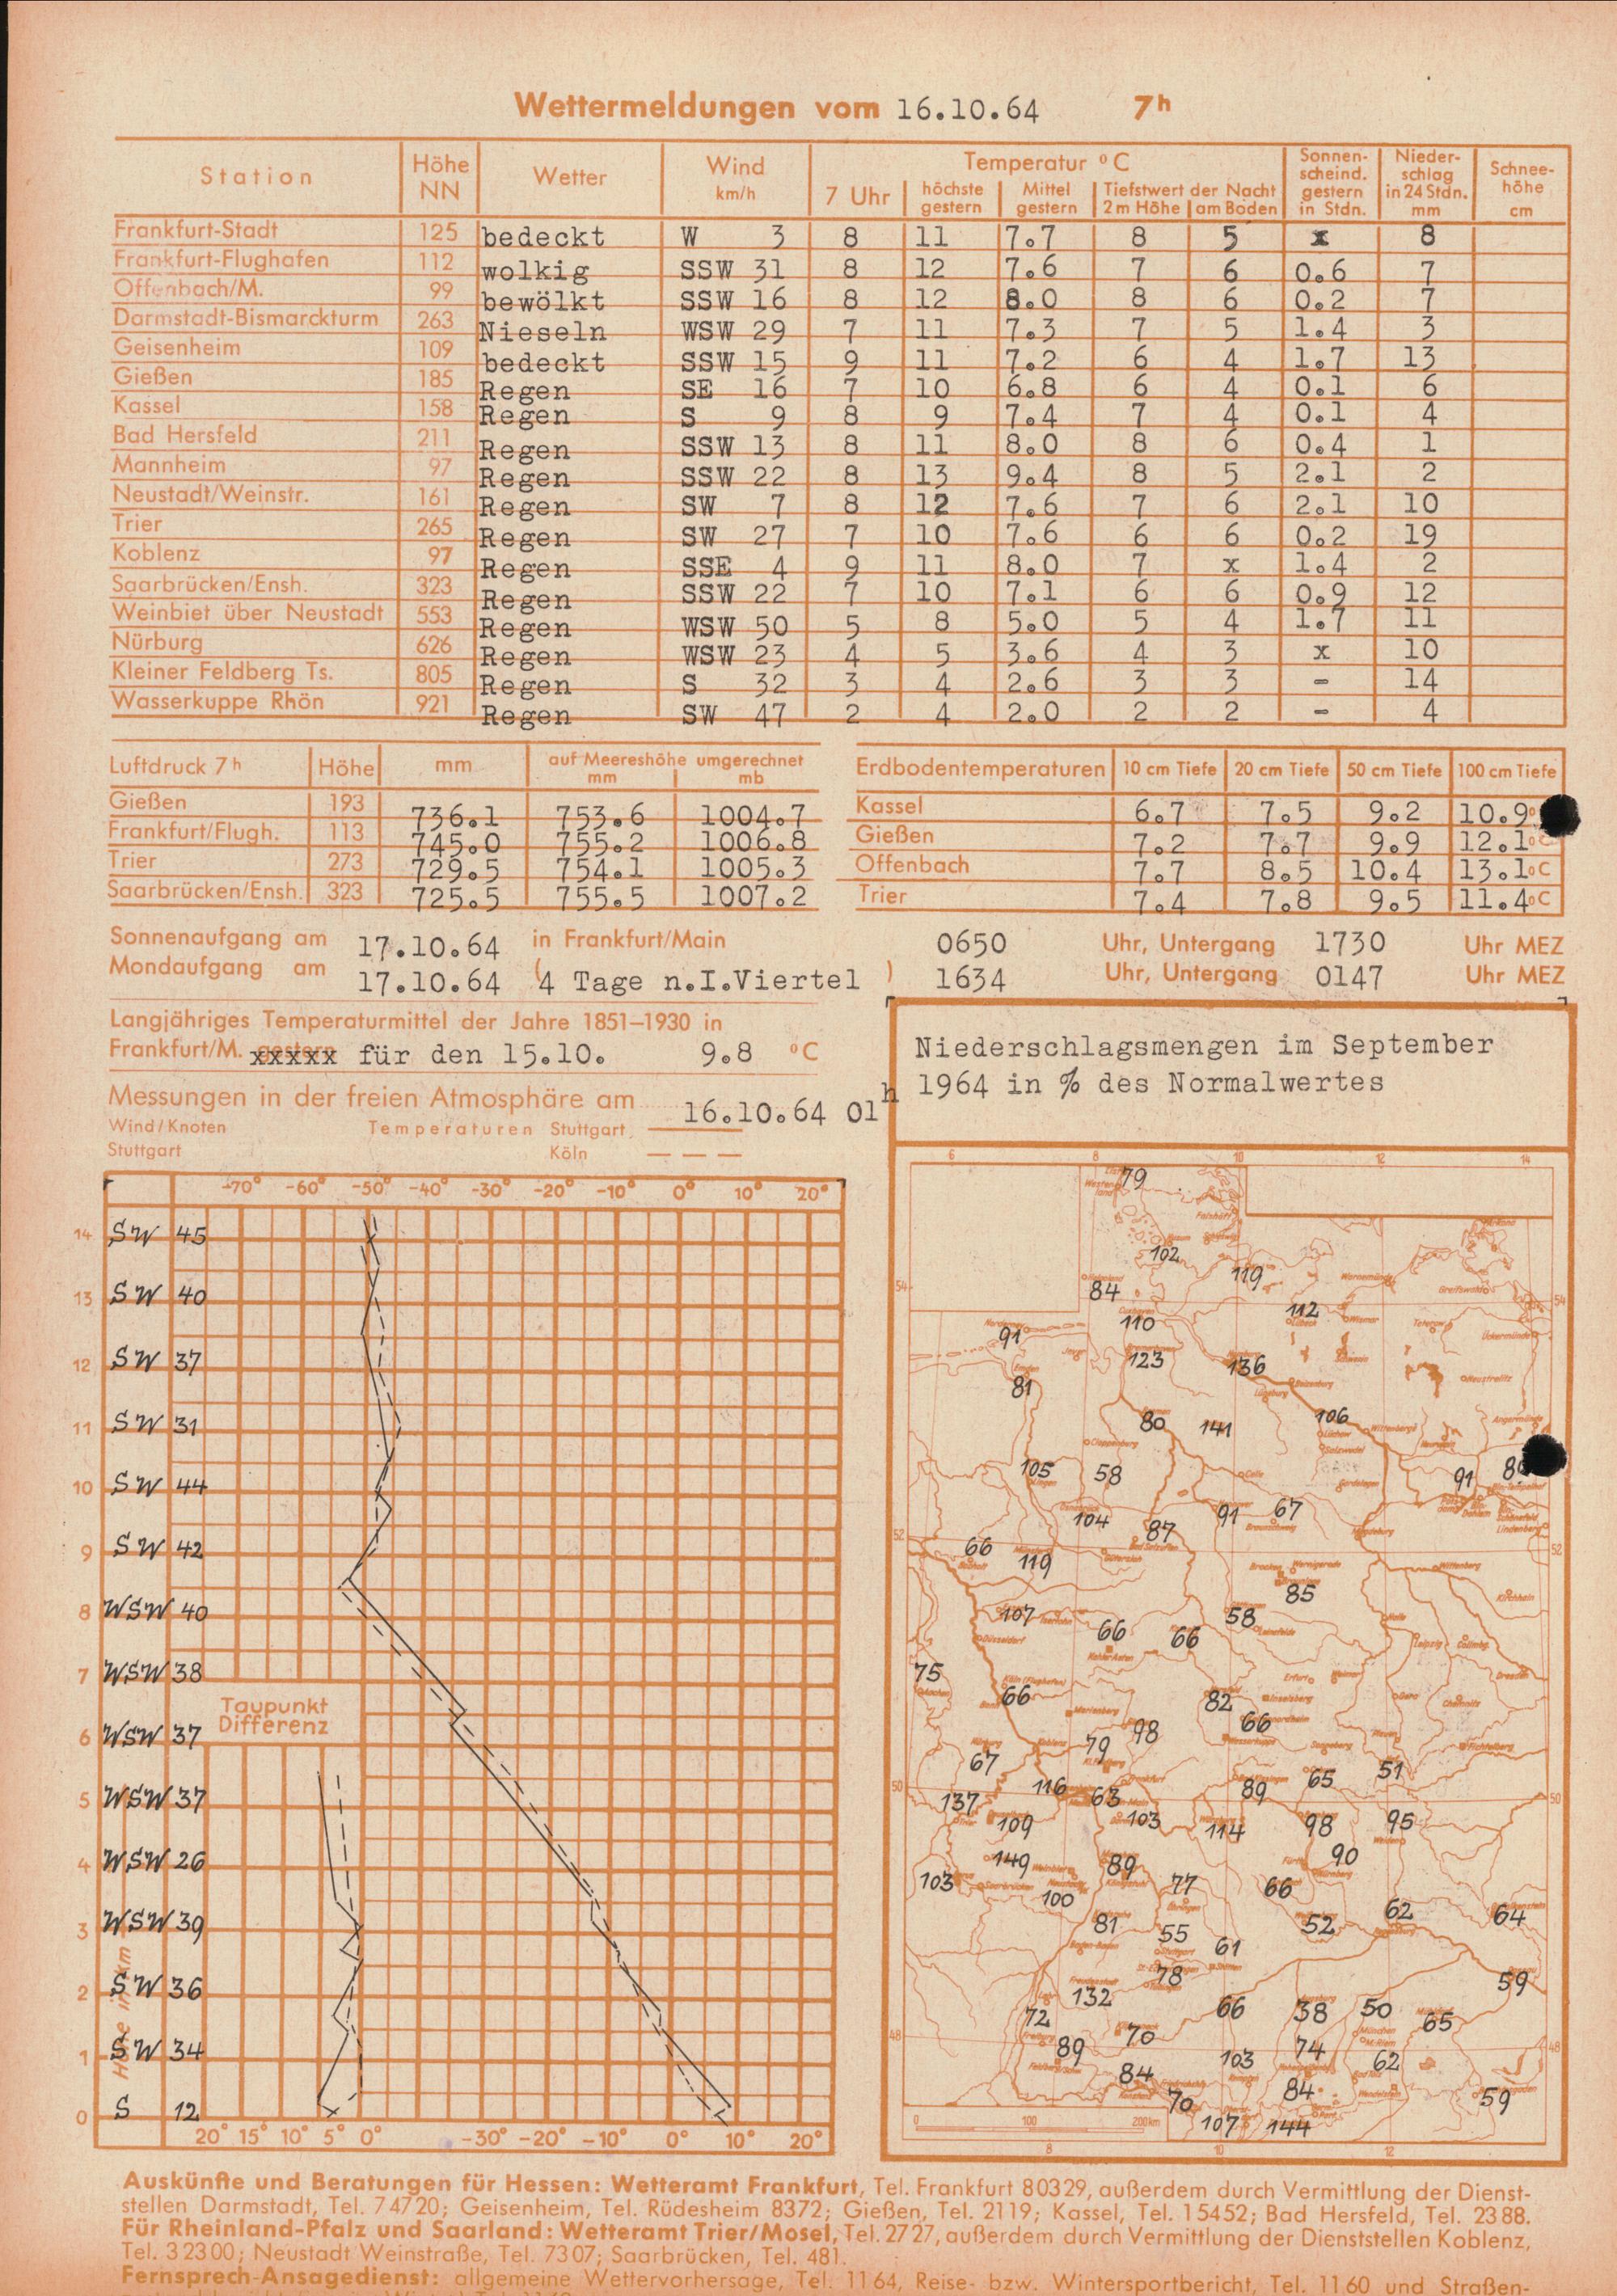 Wettermeldungen vom 16.10.64 7h
Station Höhe NN Wetter Wind km/h Temperatur °C Sonnenscheind. gestern in Stdn. Niederschlag in 24 Stdn. mm Schneehöhe cm
7 Uhr höchste gestern Mittel gestern Tiefstwert der Nacht 2 m Höhe am Boden
Frankfurt-Stadt 125 bedeckt W 3 8 11 7.7 8 5 x 8
Frankfurt-Flughafen 112 wolkig SSW 31 8 12 7.6 7 6 0.6 7
Offenbach/M. 99 bewölkt SSW 16 8 12 8.0 8 6 0.2 7
Darmstadt-Bismarckturm 263 Nieseln WSW 29 7 11 7.3 7 5 1.4 3
Geisenheim 109 bedeckt SSW 15 9 11 7.2 6 4 1.7 13
Gießen 185 Regen SE 16 7 10 6.8 6 4 0.1 6
Kassel 158 Regen S 9 8 9 7.4 7 4 0.1 4
Bad Hersfeld 211 Regen SSW 13 8 11 8.0 8 6 0.4 1
Mannheim 97 Regen SSW 22 8 13 9.4 8 5 2.1 2
Neustadt/Weinstr. 161 Regen SW 7 8 12 7.6 7 6 2.1 10
Trier 265 Regen SW 27 7 10 7.6 6 6 0.2 19
Koblenz 97 Regen SSE 4 9 11 8.0 7 x 1.4 2
Saarbrücken/Ensh. 323 Regen SSW 22 7 10 7.1 6 6 0.9 12
Weinbiet über Neustadt 553 Regen WSW 50 5 8 5.0 5 4 1.7 11
Nürburg 626 Regen WSW 23 4 5 3.6 4 3 x 10
Kleiner Feldberg Ts. 805 Regen S 32 3 4 2.6 3 3 - 14
Wasserkuppe Rhön 921 Regen SW 47 2 4 2.0 2 2 - 4
Luftdruck 7h Höhe mm auf Meereshöhe umgerechnet mm mb
Gießen 193 736.1 753.6 1004.7
Frankfurt/Flugh. 113 745.0 755.2 1006.8
Trier 273 729.5 754.1 1005.3
Saarbrücken/Ensh. 323 725.5 755.5 1007.2
Erdbodentemperaturen 10 cm Tiefe 20 cm Tiefe 50 cm Tiefe 100 cm Tiefe
Kassel 6.7 7.5 9.2 10.9°
Gießen 7.2 7.7 9.9 12.1°C
Offenbach 7.7 8.5 10.4 13.1°C
Trier 7.4 7.8 9.5 11.4°C
Sonnenaufgang am 17.10.64 in Frankfurt/Main 0650 Uhr, Untergang 1730 Uhr MEZ
Mondaufgang am 17.10.64 (4 Tage n.I.Viertel) 1634 Uhr, Untergang 0147 Uhr MEZ
Langjähriges Temperaturmittel der Jahre 1851–1930 in
Frankfurt/M. xxxxx für den 15.10. 9.8 °C
Messungen in der freien Atmosphäre am 16.10.64 01h
Wind/Knoten Temperaturen Stuttgart
Stuttgart Köln
-70° -60° -50° -40° -30° -20° -10° 0° 10° 20°
14 SW 45
13 SW 40
12 SW 37
11 SW 31
10 SW 44
9 SW 42
8 WSW 40
7 WSW 38
Taupunkt
Differenz
6 WSW 37
5 WSW 37
4 WSW 26
3 WSW 39
2 SW 36
1 SW 34
0 S 12
Höhe in km
20° 15° 10° 5° 0° -30° -20° -10° 0° 10° 20°
Niederschlagsmengen im September
1964 in % des Normalwertes
6 8 10 12 14
79
102
119
54 84 54
112
91 110
123 136
81
80 141 106
105 58 91
104 87 91 67
52 66 119 52
85
107 66 66 58
75 66 82 66
98
67 79
116 63 89 65 51
50 137 50
109 103 114 98 95
149 89 90
103 100 77 66
81 55 61 52 62 64
78 59
132
72 66 38 50 65
48 70 48
89 103 74 62
84 84
70 59
107 144
0 100 200 km
8 10 12
Auskünfte und Beratungen für Hessen: Wetteramt Frankfurt, Tel. Frankfurt 80329, außerdem durch Vermittlung der Dienst-
stellen Darmstadt, Tel. 74720; Geisenheim, Tel. Rüdesheim 8372; Gießen, Tel. 2119; Kassel, Tel. 15452; Bad Hersfeld, Tel. 2388.
Für Rheinland-Pfalz und Saarland: Wetteramt Trier/Mosel, Tel. 2727, außerdem durch Vermittlung der Dienststellen Koblenz,
Tel. 32300; Neustadt Weinstraße, Tel. 7307; Saarbrücken, Tel. 481.
Fernsprech-Ansagedienst: allgemeine Wettervorhersage, Tel. 1164, Reise- bzw. Wintersportbericht, Tel. 1160 und Straßen-